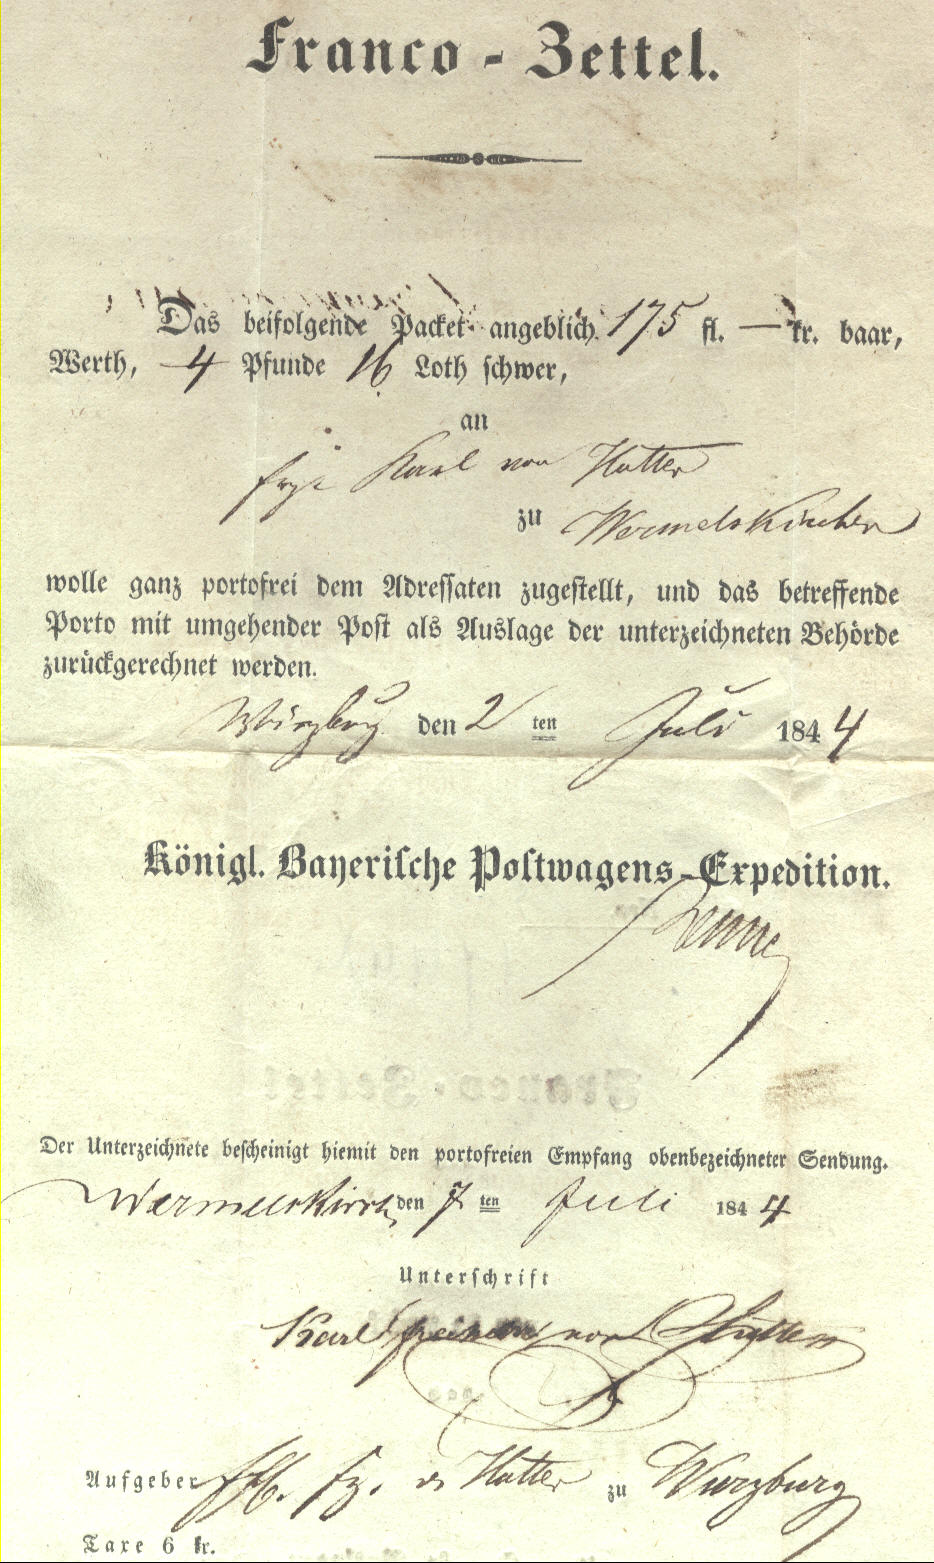 Franco - Zettel.
Das beifolgende Packet angeblich 175 fl. — kr. baar,
Werth, 4 Pfunde 16 Loth schwer,
an
Karl von Hutten
zu Wermelskirchen
wolle ganz portofrei dem Adressaten zugestellt, und das betreffende
Porto mit umgehender Post als Auslage der unterzeichneten Behörde
zurückgerechnet werden.
Würzburg den 2 ten Juli 1844
Königl. Bayerische Postwagens-Expedition.
Der Unterzeichnete bescheinigt hiemit den portofreien Empfang obenbezeichneter Sendung.
den 7 ten Juli 1844
Unterschrift
Karl von Hutten
Aufgeber v Hutten zu Würzburg
Taxe 6 kr.